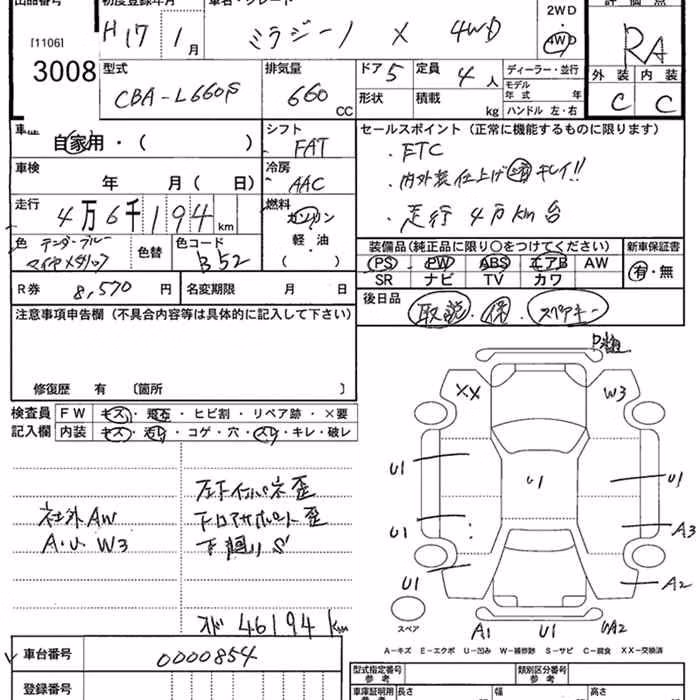 出品番号
初度登録年月
車名・グレード
評価点
[1106]
3008
H17 1月
ミラジーノ X 4WD
2WD
・
4WD
RA
外装 内装
C C
型式
CBA-L660S
排気量
660 CC
ドア 5
定員 4人
形状
積載 kg
ディーラー・並行
モデル年式 年
ハンドル 左・右
車歴
自家用・( )
シフト
FAT
セールスポイント(正常に機能するものに限ります)
・ETC
・内外装仕上げ済 キレイ!!
・走行4万km台
車検
年 月( 日)
冷房
AAC
走行
4万6千194km
燃料
ガソリン
軽・油
( )
色
色替
色コード
B52
装備品(純正品に限り○をつけてください)
新車保証書
PS PW ABS エアB AW
SR ナビ TV カワ
有・無
R券 8,570円
名変期限 月 日
後日品
取説 保 スペアキー
注意事項申告欄(不具合内容等は具体的に記入して下さい)
修復歴 有 〔箇所 〕
検査員
記入欄
FW キズ・飛石・ヒビ割・リペア跡・×要
内装 キズ・汚レ・コゲ・穴・スレ・キレ・破レ
社外AW
A・U W3
下廻りS
46194km
XX
W3
U1
U1
U1
U1
U1
A3
A2
A1
U1
UA2
スペア
A-キズ E-エクボ U-凹み W-補修跡 S-サビ C-腐食 XX-交換済
車台番号
0000854
登録番号
型式指定番号
参考
類別区分番号
参考
車庫証明用
参考
長さ
幅
高さ